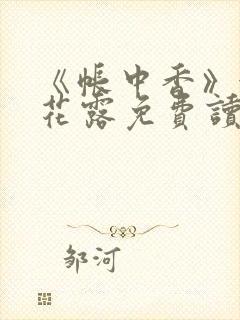 《帐中香》
花露免費讀
邹河